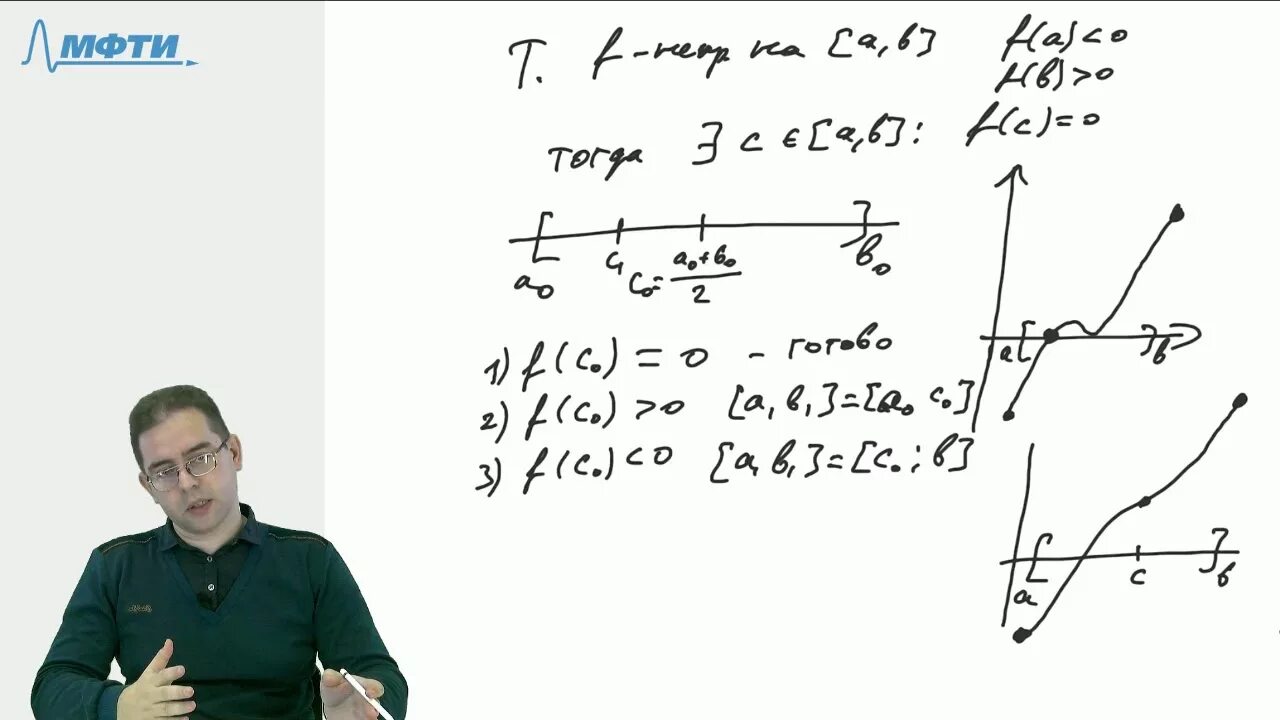 МФТИ
Т. f-непр на [a,b] f(a)<0
f(b)>0
тогда ∃ c ∈ [a,b]: f(c)=0
a₀ c₁ c₀=(a₀+b₀)/2 b₀
1) f(c₀) = 0 - готово
2) f(c₀) >0 [a₁ b₁]=[a₀ c₀]
3) f(c₀) <0 [a₁ b₁]=[c₀; b]
a b
a c b